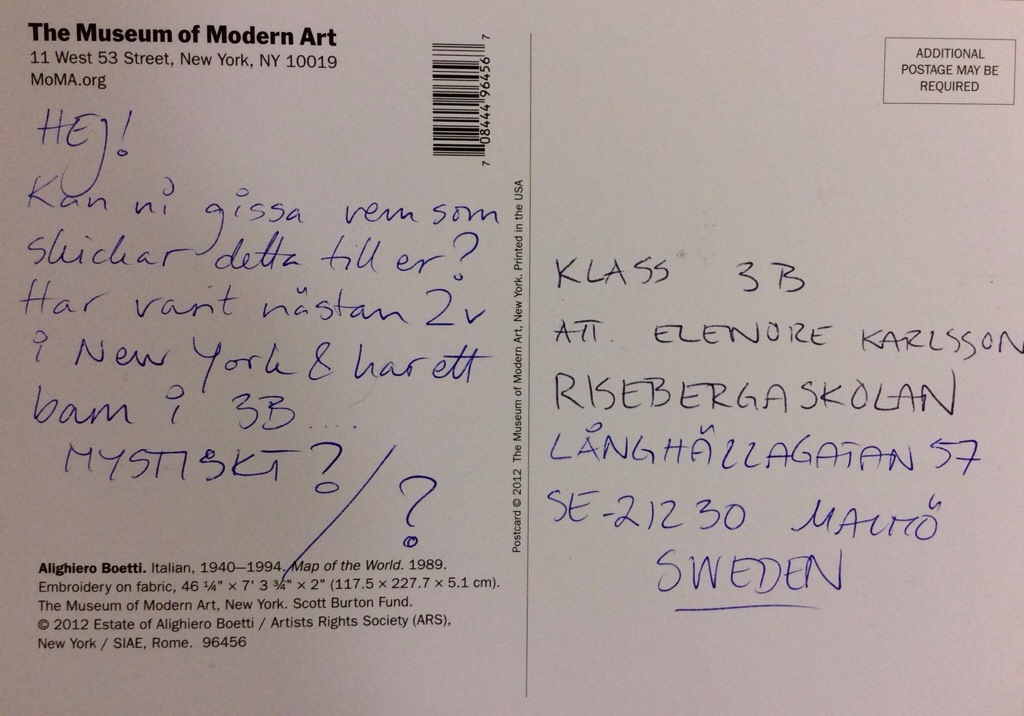 The Museum of Modern Art
11 West 53 Street, New York, NY 10019
MoMA.org
7 08444 96456 7
HEJ!
Kan ni gissa vem som
skickar detta till er?
Har varit nästan 2v
i New York & har ett
barn i 3B....
MYSTISKT?
/?
Alighiero Boetti. Italian, 1940–1994. Map of the World. 1989.
Embroidery on fabric, 46 ¼" × 7' 3 ¾" × 2" (117.5 × 227.7 × 5.1 cm).
The Museum of Modern Art, New York. Scott Burton Fund.
© 2012 Estate of Alighiero Boetti / Artists Rights Society (ARS),
New York / SIAE, Rome. 96456
Postcard © 2012 The Museum of Modern Art, New York. Printed in the USA
ADDITIONAL
POSTAGE MAY BE
REQUIRED
KLASS 3B
ATT. ELENORE KARLSSON
RISEBERGASKOLAN
LÅNGHÄLLAGATAN 57
SE-212 30 MALMÖ
SWEDEN